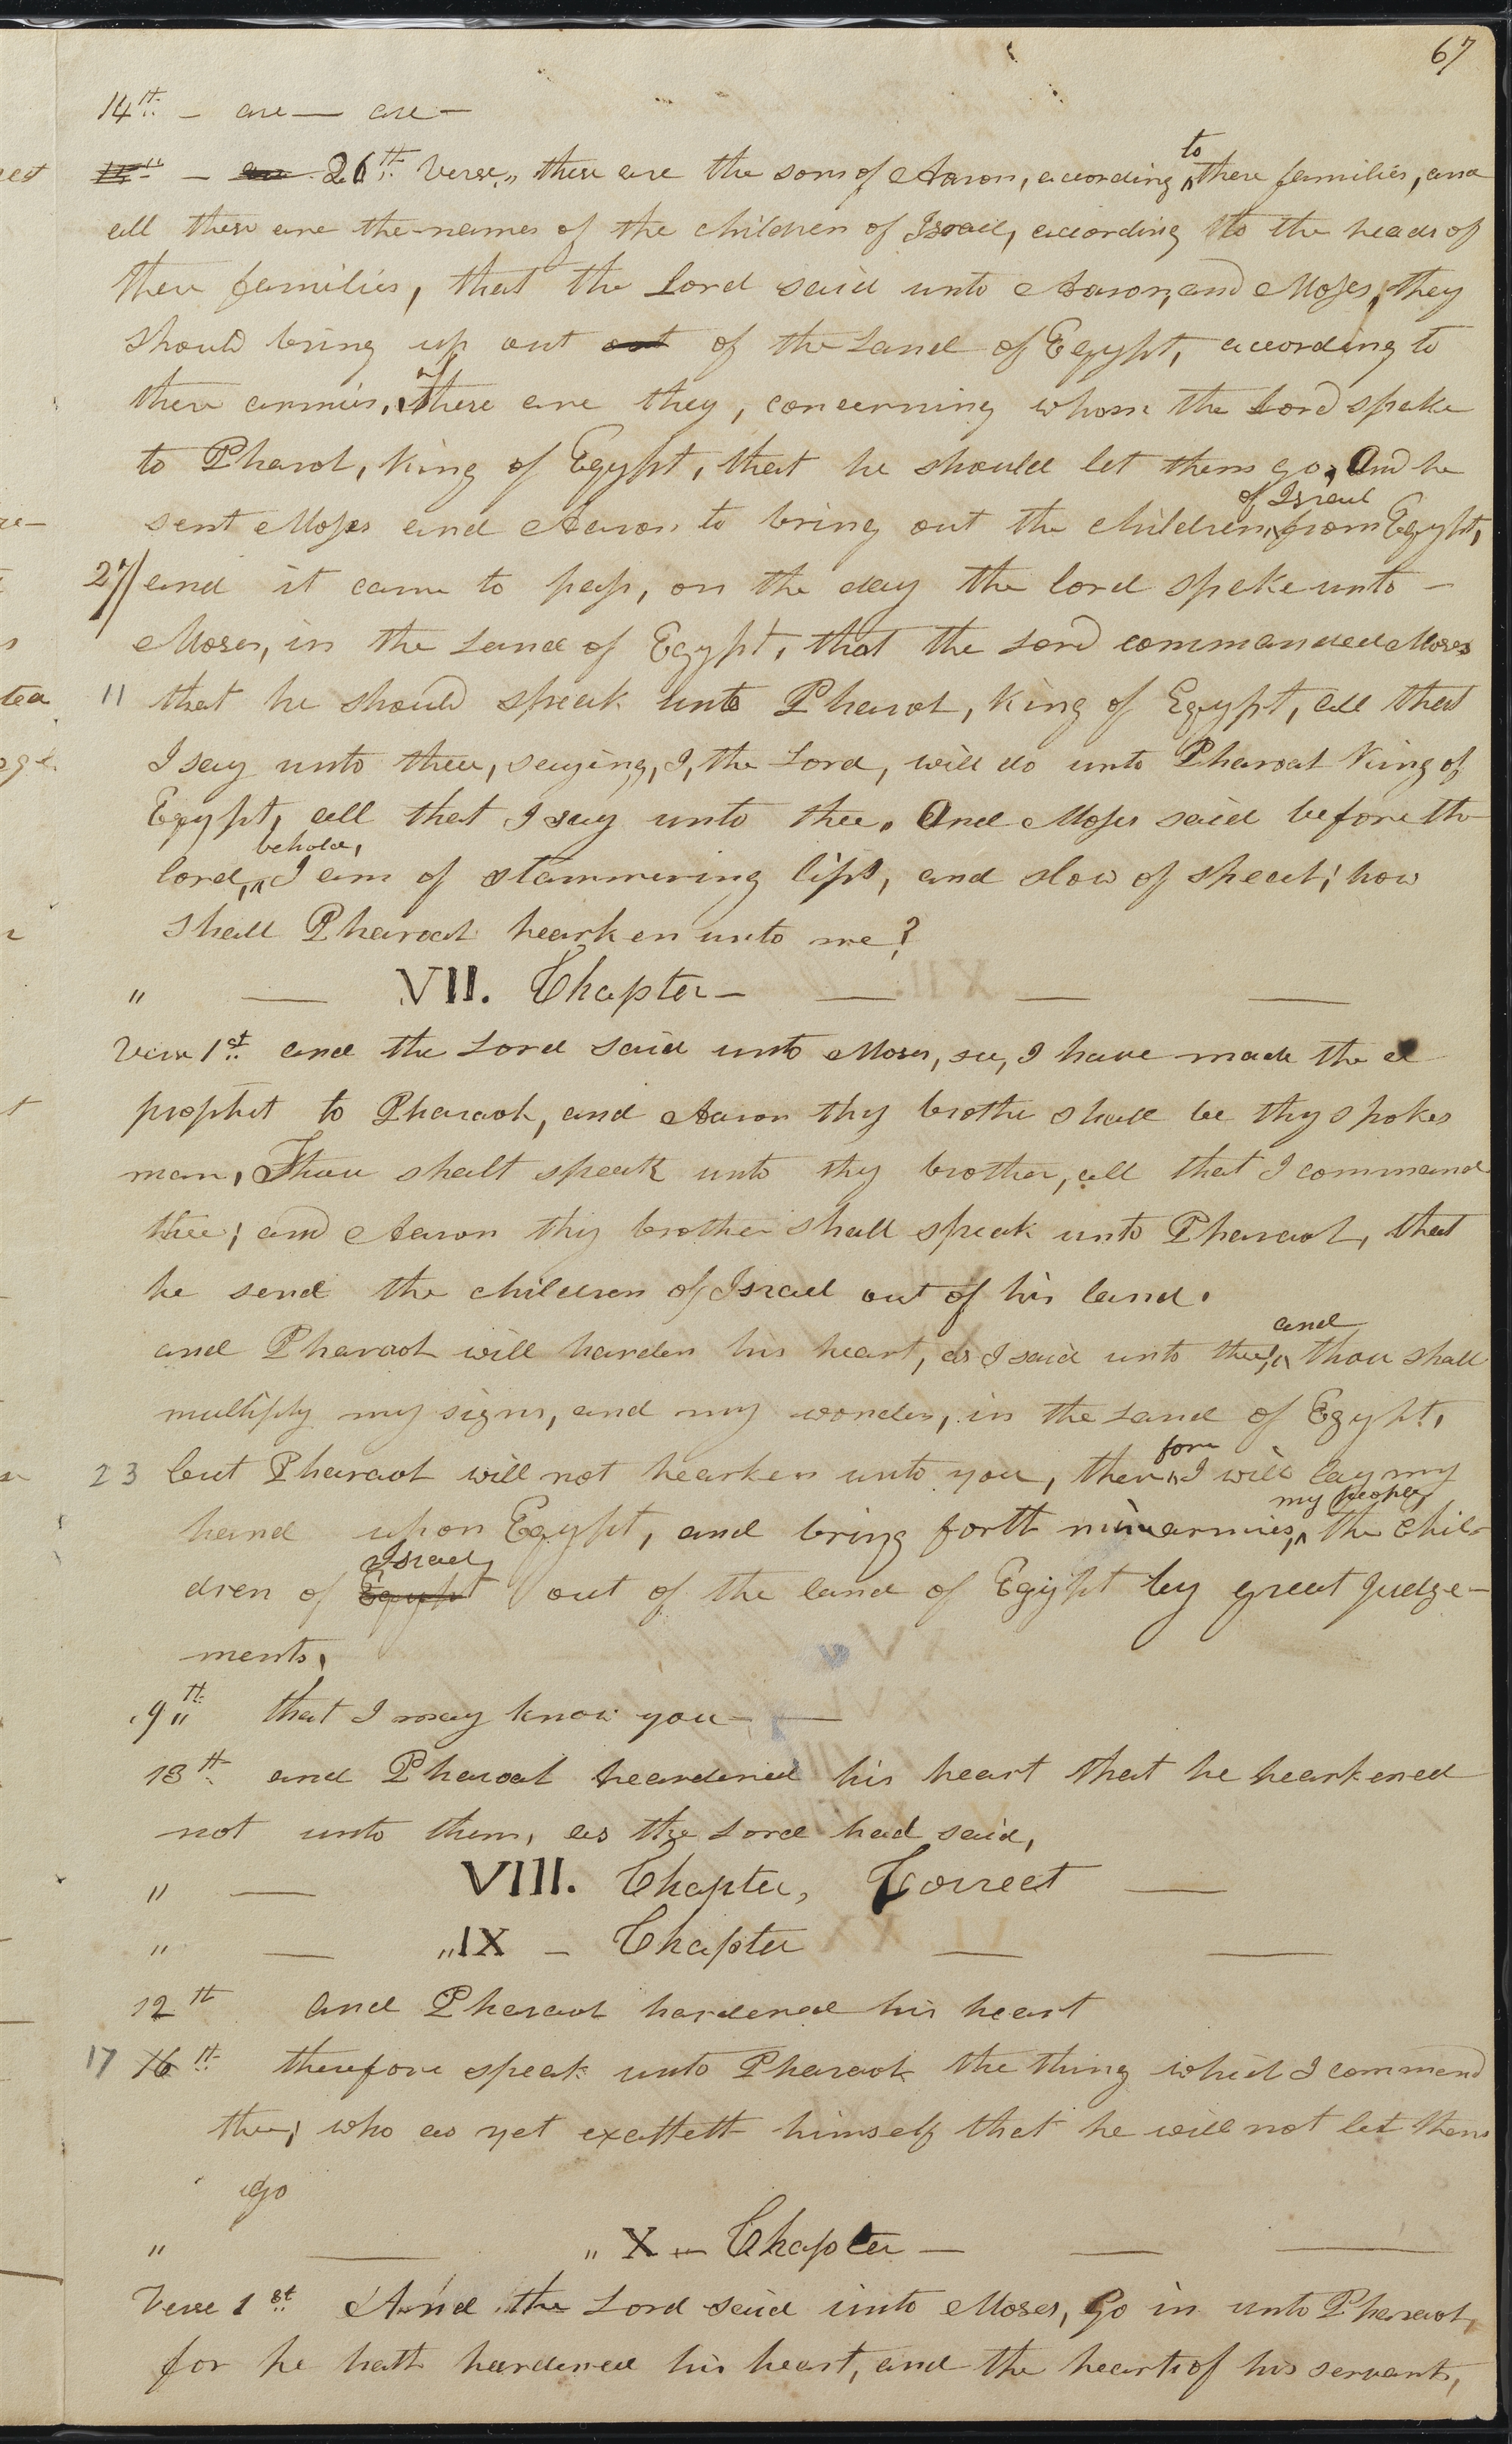 67
14th – are — are –
11th – are 26th Verse,, these are the sons of Aaron, according to there families, and
all these are the names of the children of Israel, according to the heads of
there families, that the Lord said unto Aaron, and Moses, they
should bring up out out of the Land of Egypt, according to
there armies, these are they, concerning whom the Lord spake
to Pharoh, King of Egypt, that he should let them go, And he
sent Moses and Aaron to bring out the children of Israel from Egypt,
27/ and it came to pass, on the day the lord spake unto –
Moses, in the Land of Egypt, that the Lord commanded Moses
11 that he should speak unto Pharoh, King of Egypt, all that
I say unto thee, saying, I, the Lord, will do unto Pharoah King of
Egypt, all that I say unto thee. And Moses said before the
lord, behold, I am of stammering lips, and slow of speech; how
shall Pharoah hearken unto me?
" — VII. Chapter – — — —
Verse 1st and the Lord said unto Moses, see, I have made the a
prophet to Pharaoh, and Aaron thy brother shall be thy spokes
man, Thou shalt speak unto thy brother, all that I command
thee; and Aaron thy brother shall speak unto Pharaoh, that
he send the children of Israel out of his land.
and Pharaoh will harden his heart, as I said unto thee, and thou shall
multiply my signs, and my wonders, in the Land of Egypt,
23 but Pharaoh will not hearken unto you, therefore I will lay my
hand upon Egypt, and bring forth mine armies, my people, the chil-
dren of Egypt Israel, out of the land of Egypt by great judge-
ments,
9th that I may know you — —
13th and Pharoah heardened his heart that he hearkened
not unto them, as the Lord had said,
" — VIII. Chapter, Correct —
" — ,,IX – Chapter — —
12th And Pharaoh hardened his heart
17 16th therefore speak unto Pharaoh the thing which I command
thee; who as yet exalteth himself that he will not let them
go
" — ,, X – Chapter – — —
Verse 1st And the Lord said unto Moses, Go in unto Pharaoh,
for he hath hardened his heart, and the hearts of his servants,